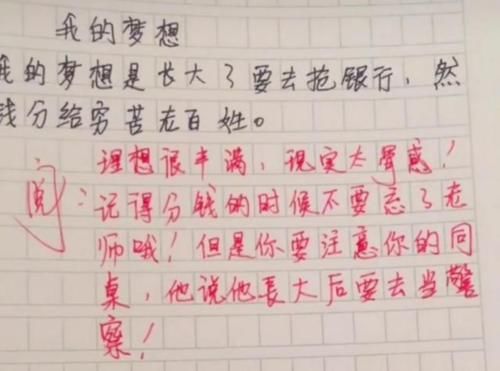 我的梦想
我的梦想是长大了要去抢银行，然
钱分给穷苦老百姓。
理想很丰满，现实太骨感！
阅：记得分钱的时候不要忘了老
师哦！但是你要注意你的同
桌，他说他长大后要去当警
察！